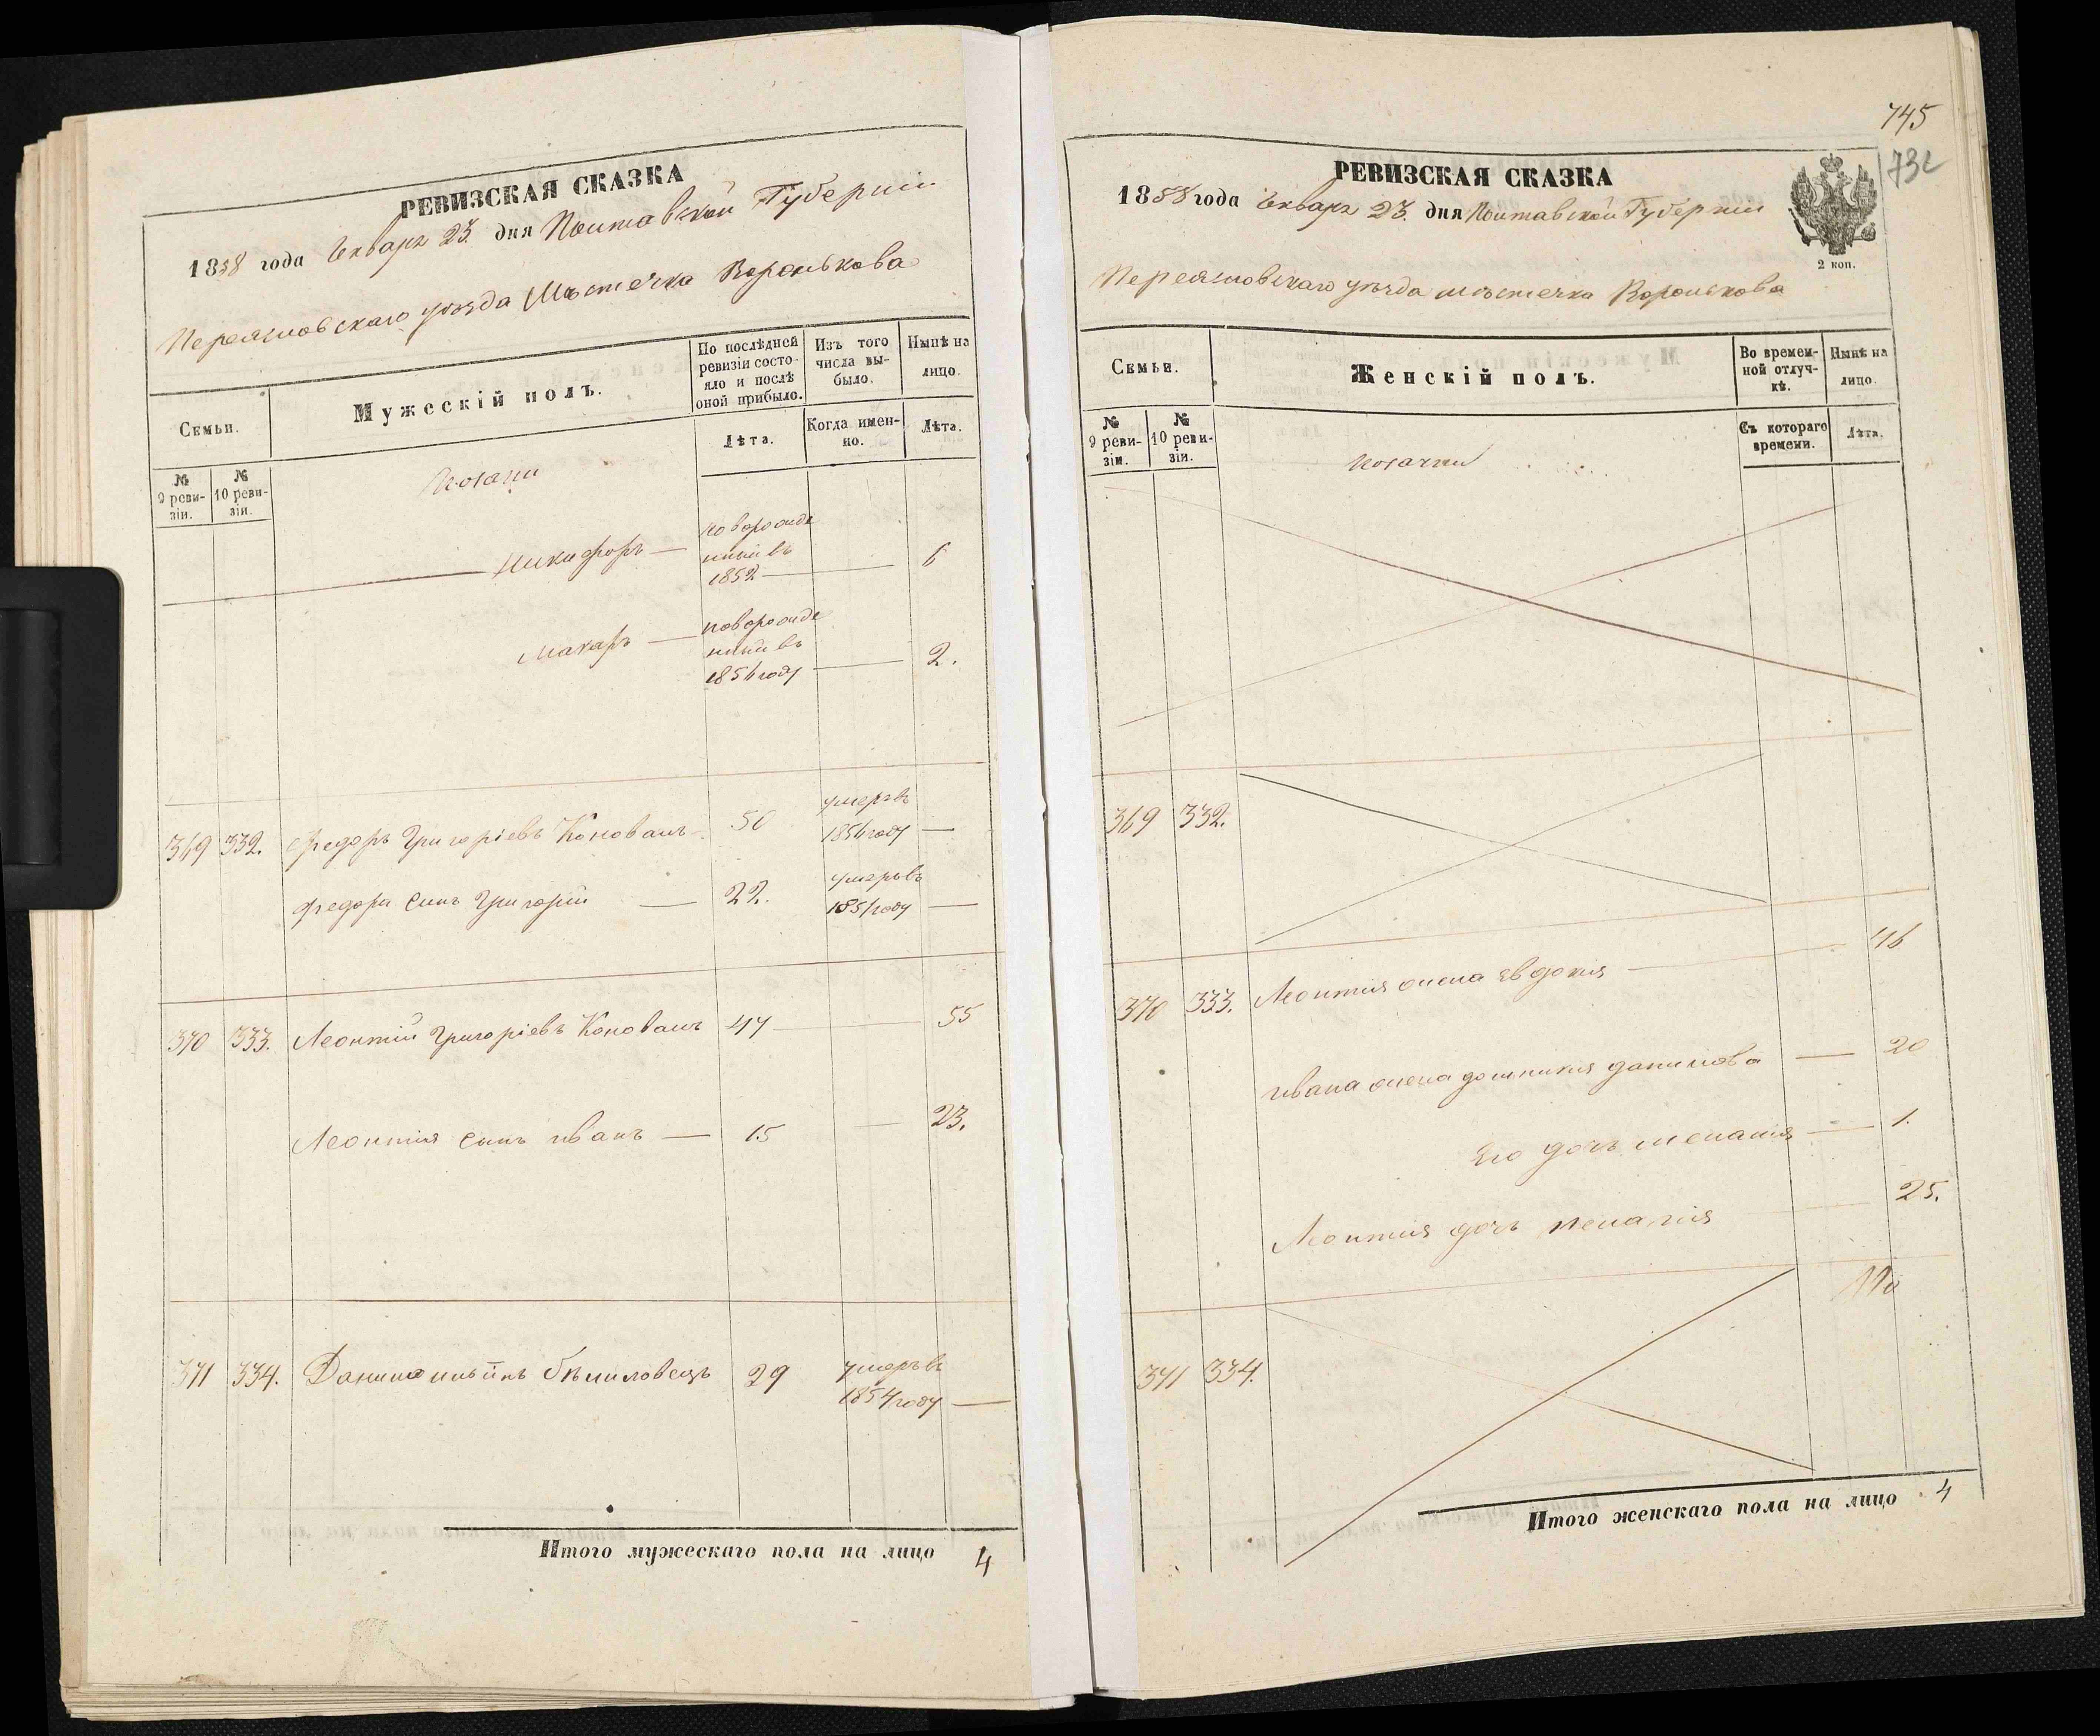 РЕВИЗСКАЯ СКАЗКА
1858 года Генваря 23 дня Полтавской Губерніи
Переясловскаго уѣзда Мѣстечка Воронькова
Семьи.
Мужескій полъ.
По послѣдней ревизіи состояло и послѣ оной прибыло.
Изъ того числа выбыло.
Нынѣ на лицо.
Лѣта.
Когда именно.
Лѣта.
№ 9 ревизіи.
№ 10 ревизіи.
Козаки
Никифоръ — новорожденный въ 1852 — 6
Макаръ — новорожденный въ 1856 году — 2.
369 332. Федоръ Григоріевъ Коновалъ 50 умеръ въ 1856 году —
Федора сынъ Григорій — 22. умеръ въ 1851 году —
370 333. Леонтій Григоріевъ Коновалъ 47 — 55
Леонтія сынъ Иванъ — 15 — 23.
371 334. Данило 29 умеръ въ 1854 году —
Итого мужескаго пола на лицо 4
745
732
РЕВИЗСКАЯ СКАЗКА
1858 года Генваря 23 дня Полтавской Губерніи
2 коп.
Переясловскаго уѣзда мѣстечка Воронькова
Семьи.
Женскій полъ.
Во временной отлучкѣ.
Нынѣ на лицо.
№ 9 ревизіи.
№ 10 ревизіи.
Съ котораго времени.
Лѣта.
Козачки
369 332.
370 333. Леонтія жена Евдокія — 46
Ивана жена Домникія Данилова — 20
Его дочь Меланія — 1.
Леонтія дочь 25.
371 334.
Итого женскаго пола на лицо 4